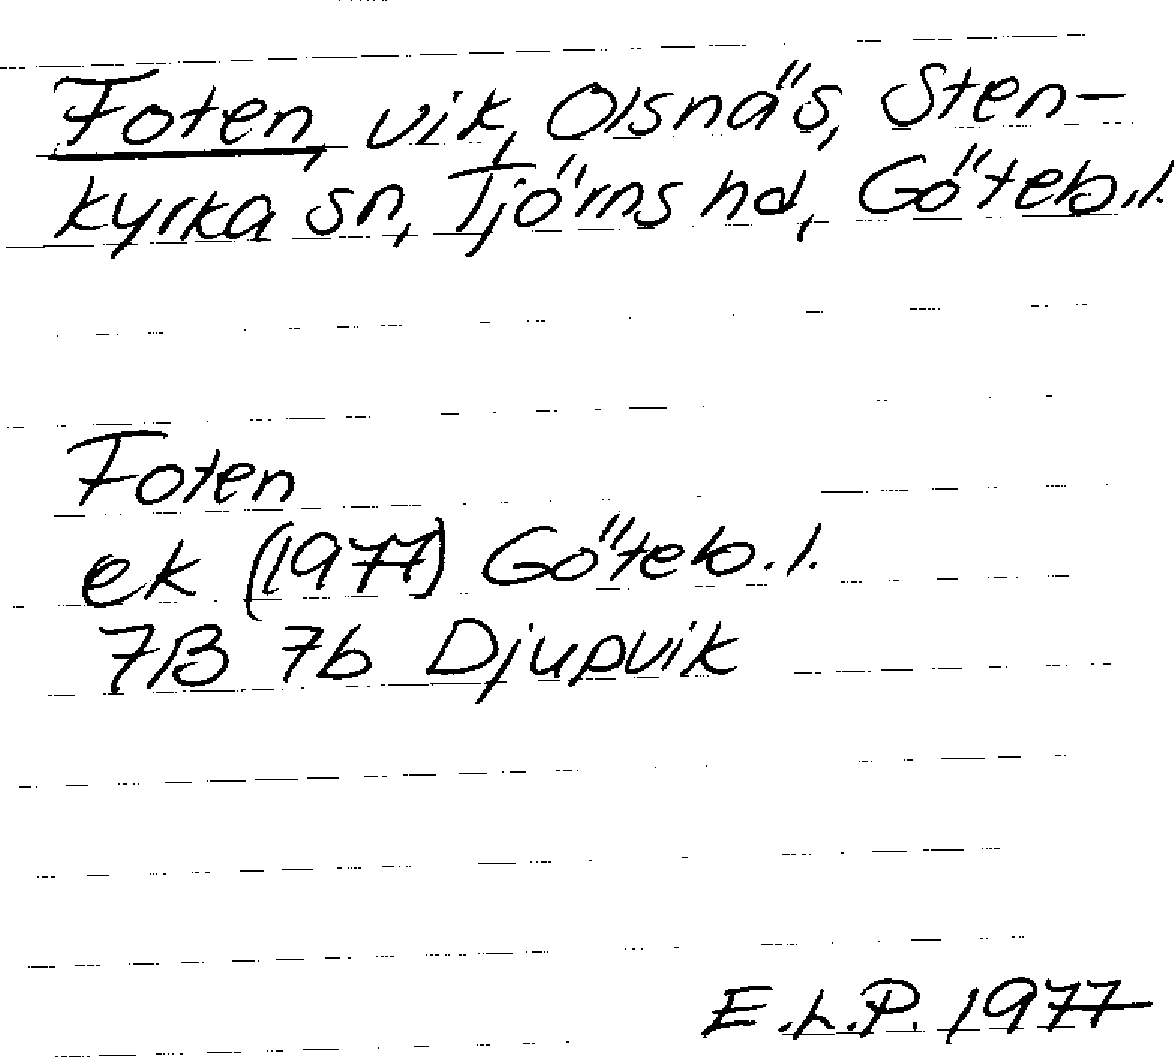 Foten, vik, Olsnäs, Sten-
kyrka sn, Tjörns hd, Göteb.l.
Foten
ek (1977) Göteb.l.
7B 7b Djupvik
E.L.P. 1977